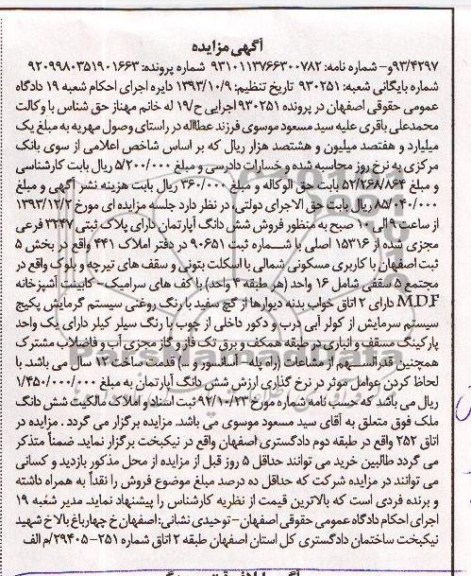 آگهی مزایده
۹۳/۴۲۹۷و- شماره نامه: ۹۳۱۰۱۱۳۷۶۶۳۰۰۷۸۲ شماره پرونده: ۹۲۰۹۹۸۰۳۵۱۹۰۱۶۶۳
شماره بایگانی شعبه: ۹۳۰۲۵۱ تاریخ تنظیم: ۱۳۹۳/۱۰/۹ دایره اجرای احکام شعبه ۱۹ دادگاه
عمومی حقوقی اصفهان در پرونده ۹۳۰۲۵۱ اجرایی ح/۱۹ له خانم مهناز حق شناس با وکالت
محمدعلی باقری علیه سید مسعود موسوی فرزند عطااله در راستای وصول مهریه به مبلغ یک
میلیارد و هفتصد میلیون و هشتصد هزار ریال که بر اساس شاخص اعلامی از سوی بانک
مرکزی به نرخ روز محاسبه شده و خسارات دادرسی و مبلغ ۵/۲۰۰/۰۰۰ ریال بابت کارشناسی
و مبلغ ۵۲/۲۶۸/۸۶۴ بابت حق الوکاله و مبلغ ۳۶۰/۰۰۰ ریال بابت هزینه نشر آگهی و مبلغ
۸۵/۰۴۰/۰۰۰ ریال بابت حق الاجرای دولتی، در نظر دارد جلسه مزایده ای مورخ ۱۳۹۳/۱۲/۲
از ساعت ۹ الی ۱۰ صبح به منظور فروش شش دانگ آپارتمان دارای پلاک ثبتی ۳۲۴۷ فرعی
مجزی شده از ۱۵۳۱۶ اصلی با شماره ثبت ۹۰۶۵۱ در دفتر املاک ۴۴۱ واقع در بخش ۵
ثبت اصفهان با کاربری مسکونی شمالی با اسکلت بتونی و سقف های تیرچه و بلوک واقع در
مجتمع ۵ سقفی شامل ۱۶ واحد (هر طبقه ۴ واحد) با کف های سرامیک- کابینت آشپزخانه
M.D.F دارای ۲ اتاق خواب بدنه دیوارها از گچ سفید با رنگ روغنی سیستم گرمایش پکیج
سیستم سرمایش از کولر آبی درب و دکور داخلی از چوب با رنگ سیلر کیلر دارای یک واحد
پارکینگ مسقف و انباری در طبقه همکف و برق تک فاز و گاز مجزی آب و فاضلاب مشترک
همچنین قدرالسهم از مشاعات (راه پله- آسانسور و ...) قدمت ساخت ۱۲ سال می باشد. با
لحاظ کردن عوامل موثر در نرخ گذاری ارزش شش دانگ آپارتمان به مبلغ ۱/۴۵۰/۰۰۰/۰۰۰
ریال می باشد که حسب نامه شماره مورخ ۹۲/۱۰/۲۳ ثبت اسناد و املاک مالکیت شش دانگ
ملک فوق متعلق به آقای سید مسعود موسوی می باشد. مزایده برگزار می گردد. مزایده در
اتاق ۲۵۲ واقع در طبقه دوم دادگستری اصفهان واقع در نیکبخت برگزار نماید. ضمناً متذکر
می گردد طالبین خرید می توانند حداقل ۵ روز قبل از مزایده از محل مذکور بازدید و کسانی
می توانند در مزایده شرکت که حداقل ده درصد مبلغ موضوع فروش را نقداً به همراه داشته
و برنده فردی است که بالاترین قیمت از نظریه کارشناس را پیشنهاد نماید. مدیر شعبه ۱۹
اجرای احکام دادگاه عمومی حقوقی اصفهان- توحیدی نشانی: اصفهان خ چهارباغ بالا خ شهید
نیکبخت ساختمان دادگستری کل استان اصفهان طبقه ۲ اتاق شماره ۲۵۱-۲۹۴۰۵/م الف